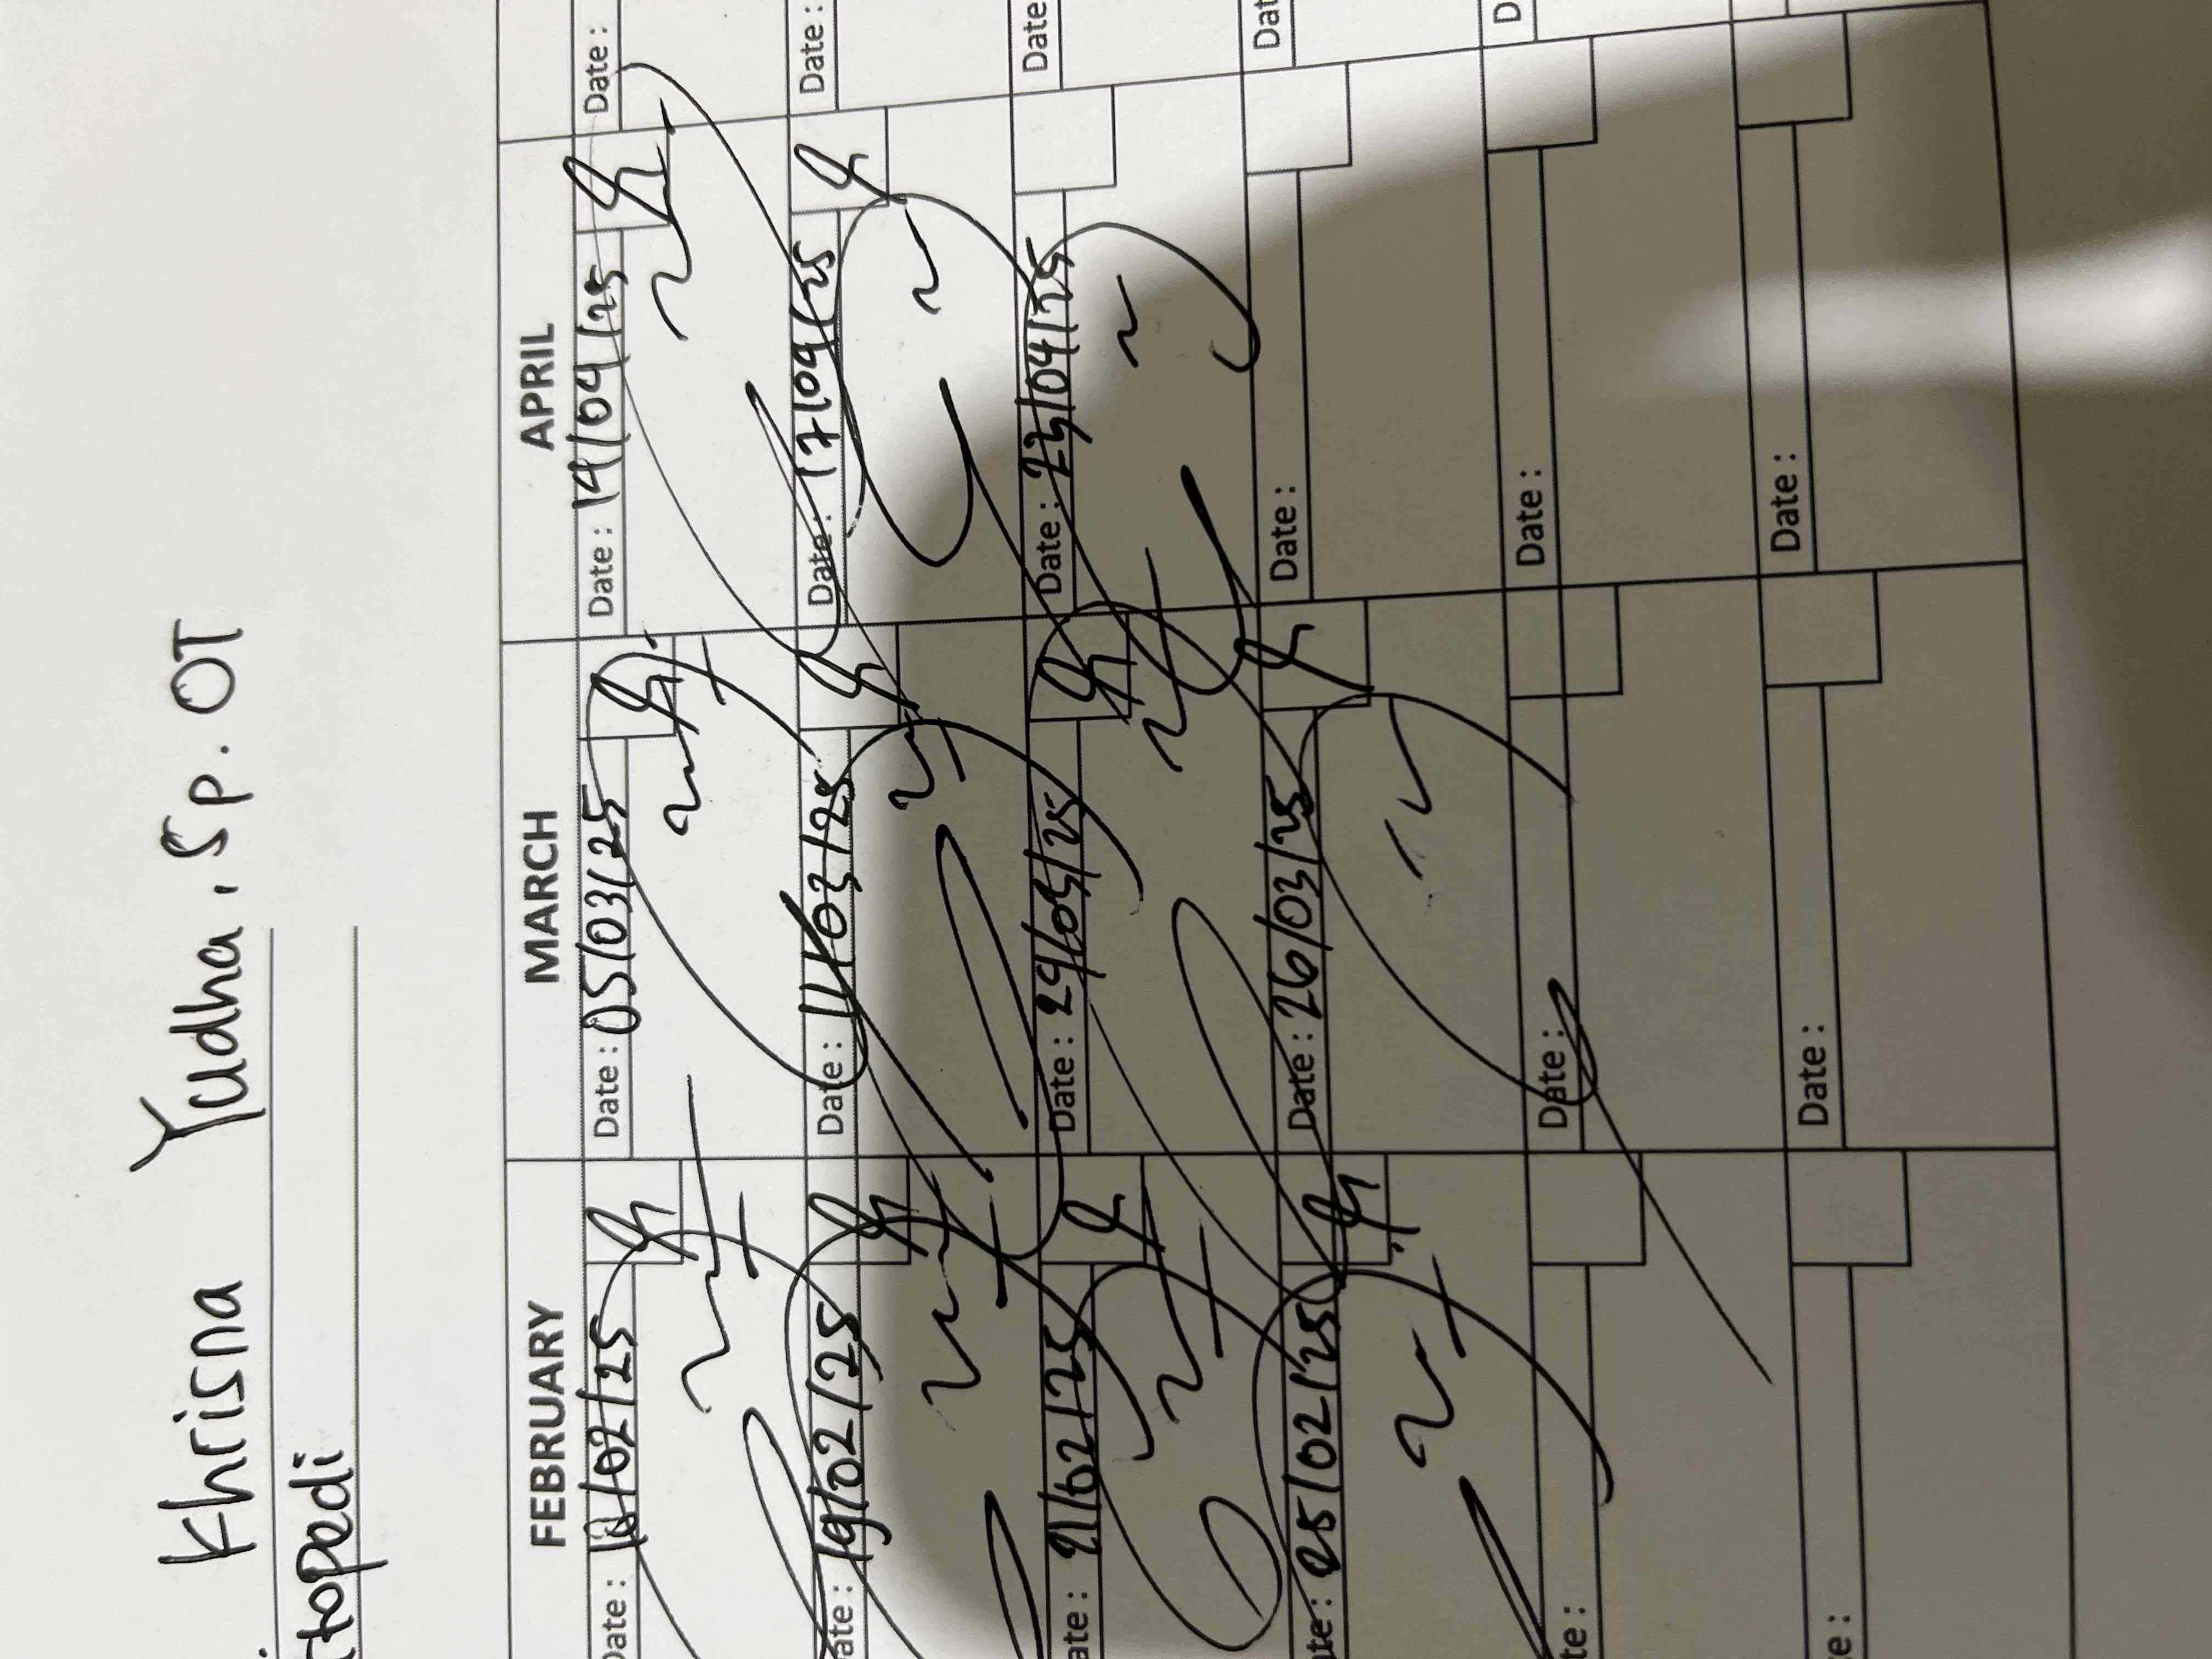 Khrisna Yudha, Sp. OT
FEBRUARY MARCH APRIL
Date: Date: 05/03/25 Date: 14/04/25 Date:
Date: 19/02/25 Date: 11/03/25 Date: 17/04/25 Date:
Date: 21/02/25 Date: 24/03/25 Date: 23/04/25 Date
Date: 25/02/25 Date: 26/03/25 Date:
Date: Date:
Date: Date: